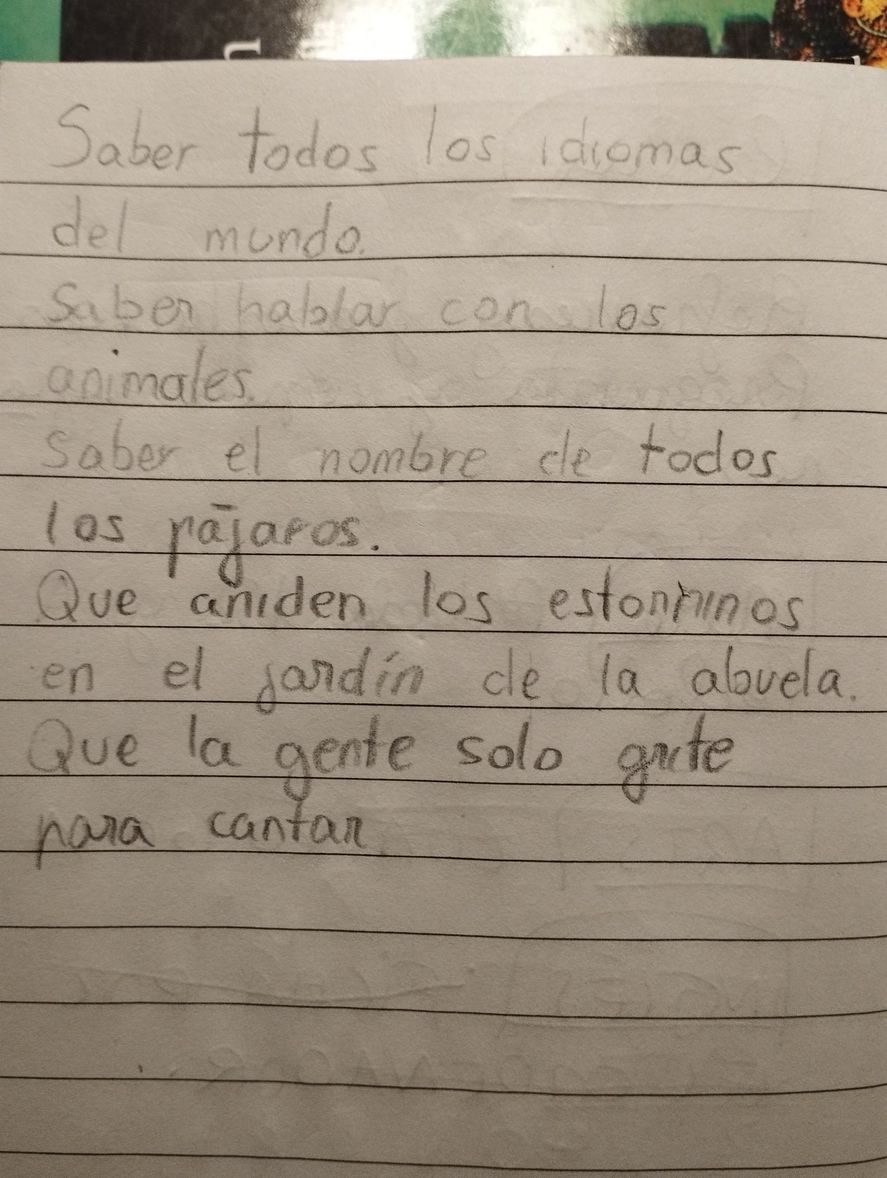 Saber todos los idiomas
del mundo.
Saber hablar con los
animales.
Saber el nombre de todos
los pájaros.
Que aniden los estorninos
en el jardín de la abuela.
Que la gente solo grite
para cantar